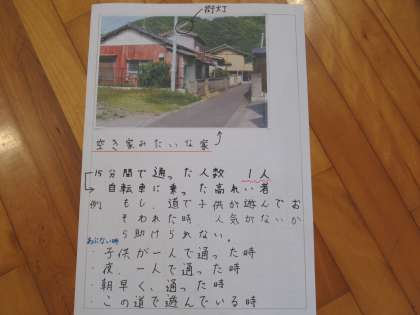 街灯
空き家みたいな家
15分間で通った人数 1人
自転車に乗った高れい者
例 もし、道で子供が遊んでお
そわれた時 人気がないか
ら助けられない。
あぶない時
・子供が一人で通った時
・夜、一人で通った時
・朝早く、通った時
・この道で遊んでいる時